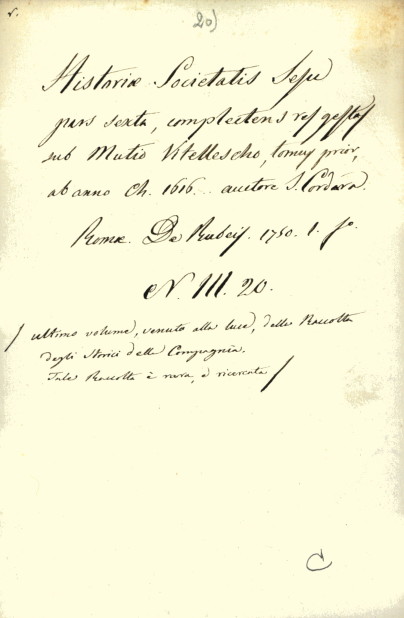 v.
20)
Historiæ Societatis Jesu
pars sexta, complectens res gestas
sub Mutio Vitellescho, tomus prior,
ab anno Ch. 1616.. auctore J. Cordara.
Romæ. De Rubeis. 1750. 1. fo.
N. III. 20.
/ ultimo volume, venuto alla luce, della Raccolta
degli Storici della Compagnia.
Tale Raccolta è rara, e ricercata /
C